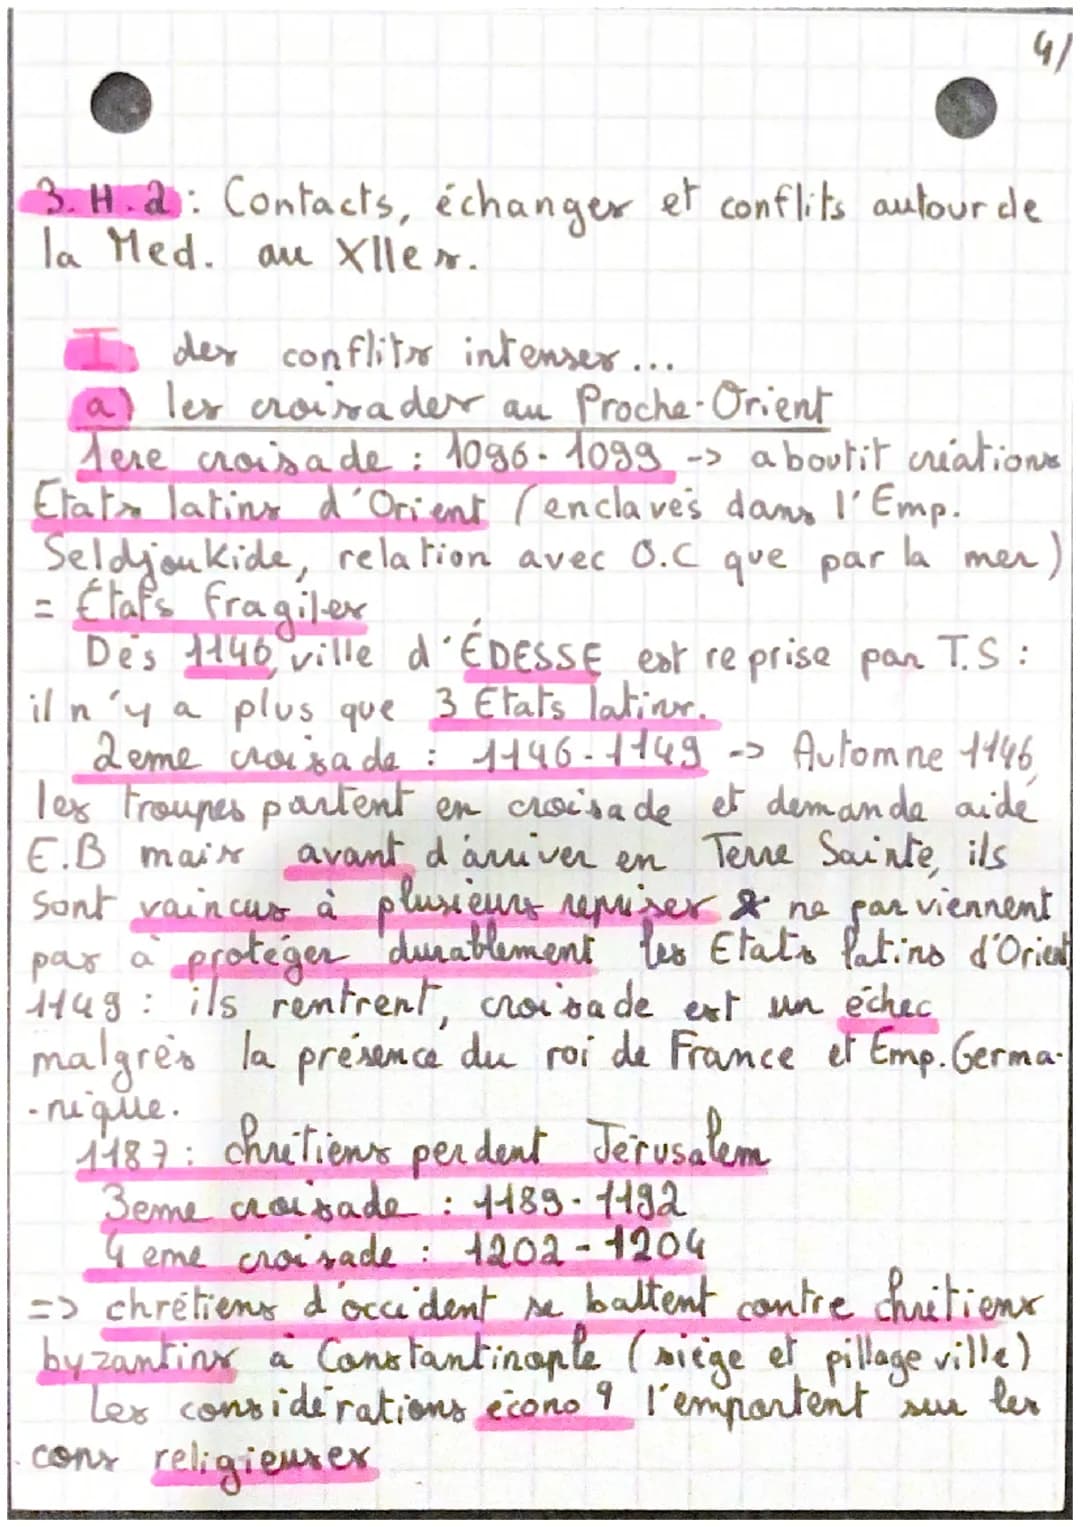 4/
3. H. 2 : Contacts, échanges et conflits autour de
la Med. au XIIe s.
I. des conflits intenses...
a) les croisades au Proche-Orient
1ere croisade : 1096-1099 -> aboutit créations
Etats latins d'Orient (enclavés dans l'Emp.
Seldjoukide, relation avec O.C que par la mer)
= États fragiles
Dès 1146, ville d'ÉDESSE est reprise par T.S :
il n'y a plus que 3 Etats latins.
2eme croisade : 1146-1149 -> Automne 1146,
les troupes partent en croisade et demande aide
E.B mais avant d'arriver en Terre Sainte, ils
sont vaincus à plusieurs reprises & ne parviennent
pas à protéger durablement les Etats latins d'Orient
1149 : ils rentrent, croisade est un échec
malgrès la présence du roi de France et Emp. Germa-
-nique.
1187 : chrétiens perdent Jérusalem
3eme croisade : 1189-1192
4eme croisade : 1202-1204
=> chrétiens d'occident se battent contre chrétiens
byzantins à Constantinople (siège et pillage ville)
Les considérations écono q l'emportent sur les
cons religieuses